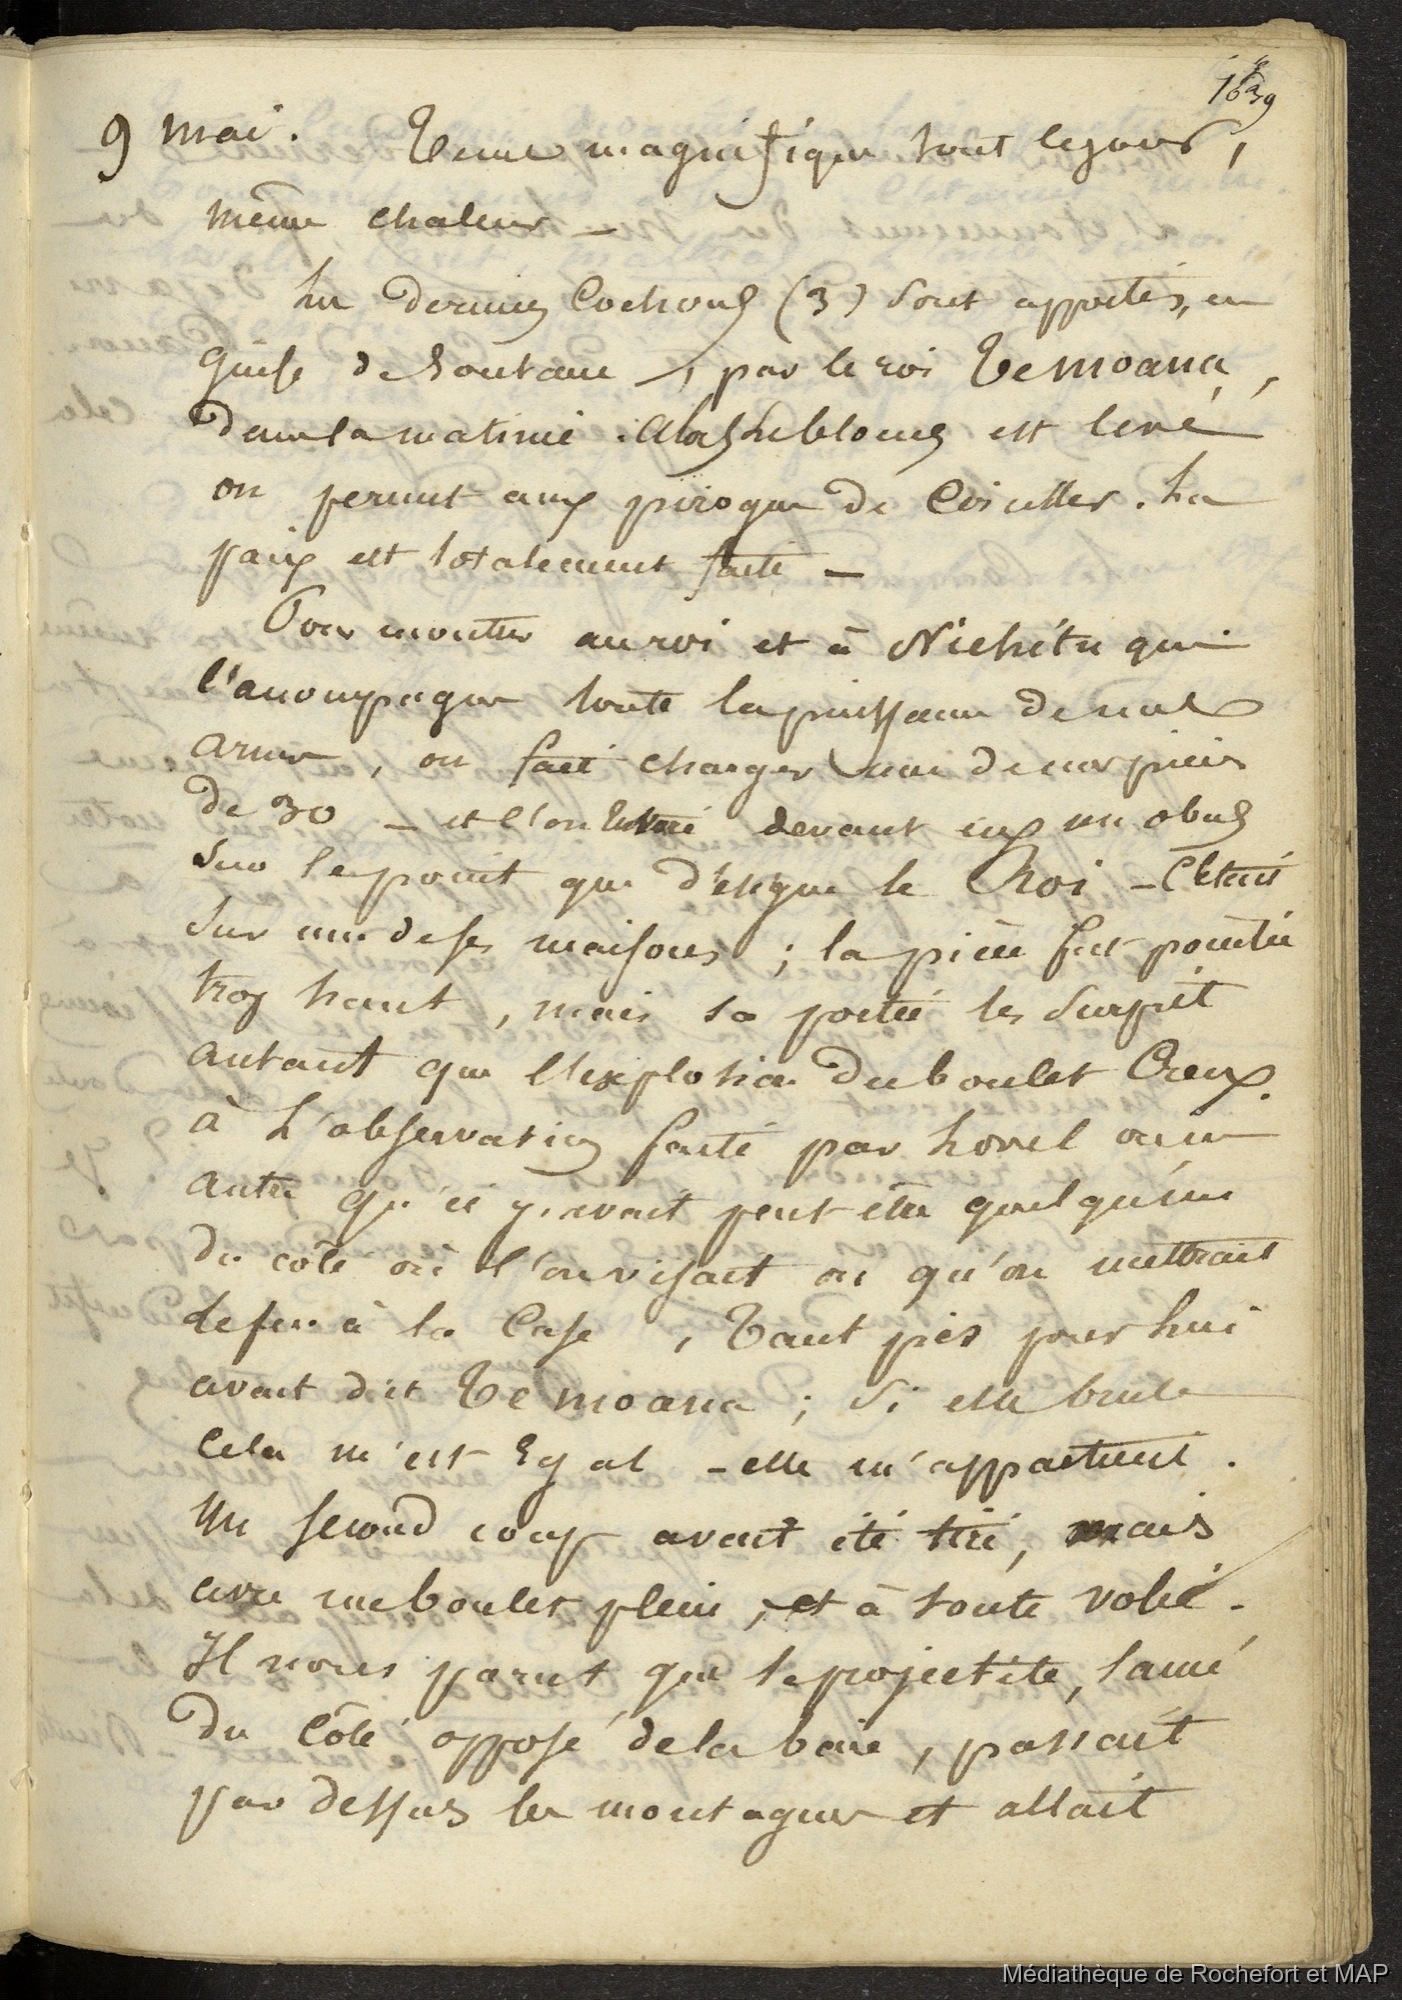 9 mai. Tems magnifique tout le jour,
même chaleur —
Les derniers Cochons (3) sont apportés, en
guise de rançon, par le roi Te moana,
dans la matinée. Alors le blocus est levé
on permet aux pirogues de Circuller. La
paix est totalement faite —
Pour montrer au roi et à Nichétu qui
l'accompagne toute la puissance de nos
armes, on fait charger une de nos pièces
de 30 — et l'on tire devant eux un obus
sur le point que désigne le Roi — C'était
sur une de ses maisons ; la pièce fut pointée
trop haut, mais sa portée les surprit
autant que l'explosion du boulet Creux.
à L'observation faite par l'un ou un
autre qu'il y avait peut être quelqu'un
du côté où l'on visait ou qu'on mettrait
le feu à la Case, Tant pis pour lui
avait dit Te moana ; Si elle brule
Cela m'est Egal — elle m'appartient.
Un second coup avait été tiré, mais
avec un boulet plein, et à toute volée.
Il nous parut que le projectile, lancé
du Côté opposé de la baie, passait
par dessus les montagnes et allait
Médiathèque de Rochefort et MAP